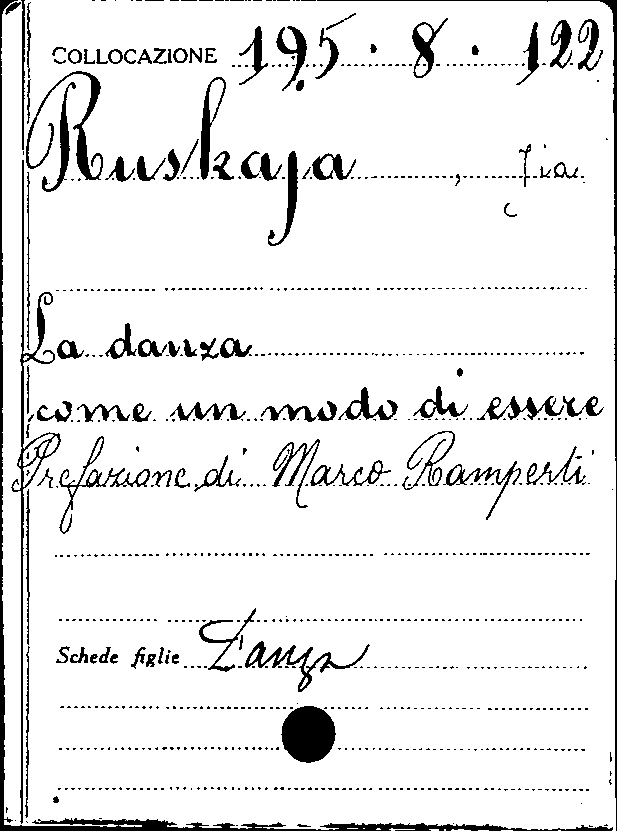 COLLOCAZIONE 195. 8. 122
Ruskaja, Jia
La danza
come un modo di essere
Prefazione di Marco Ramperti
Schede figlie Danza